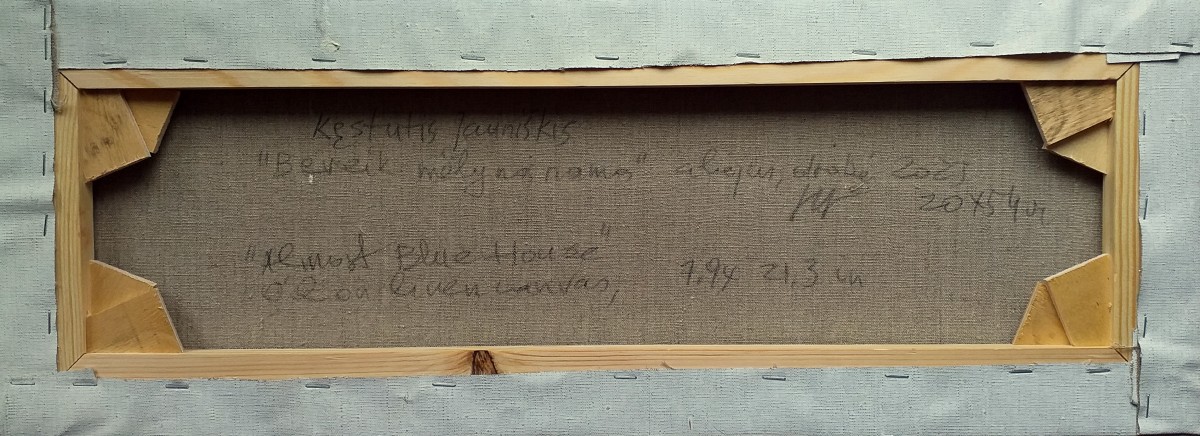 Kęstutis Jauniškis
"Beveik mėlynas namas" aliejus, drobė 2025
20x54 cm
"Almost Blue House"
Oil on linen canvas, 7.9x 21.3 in